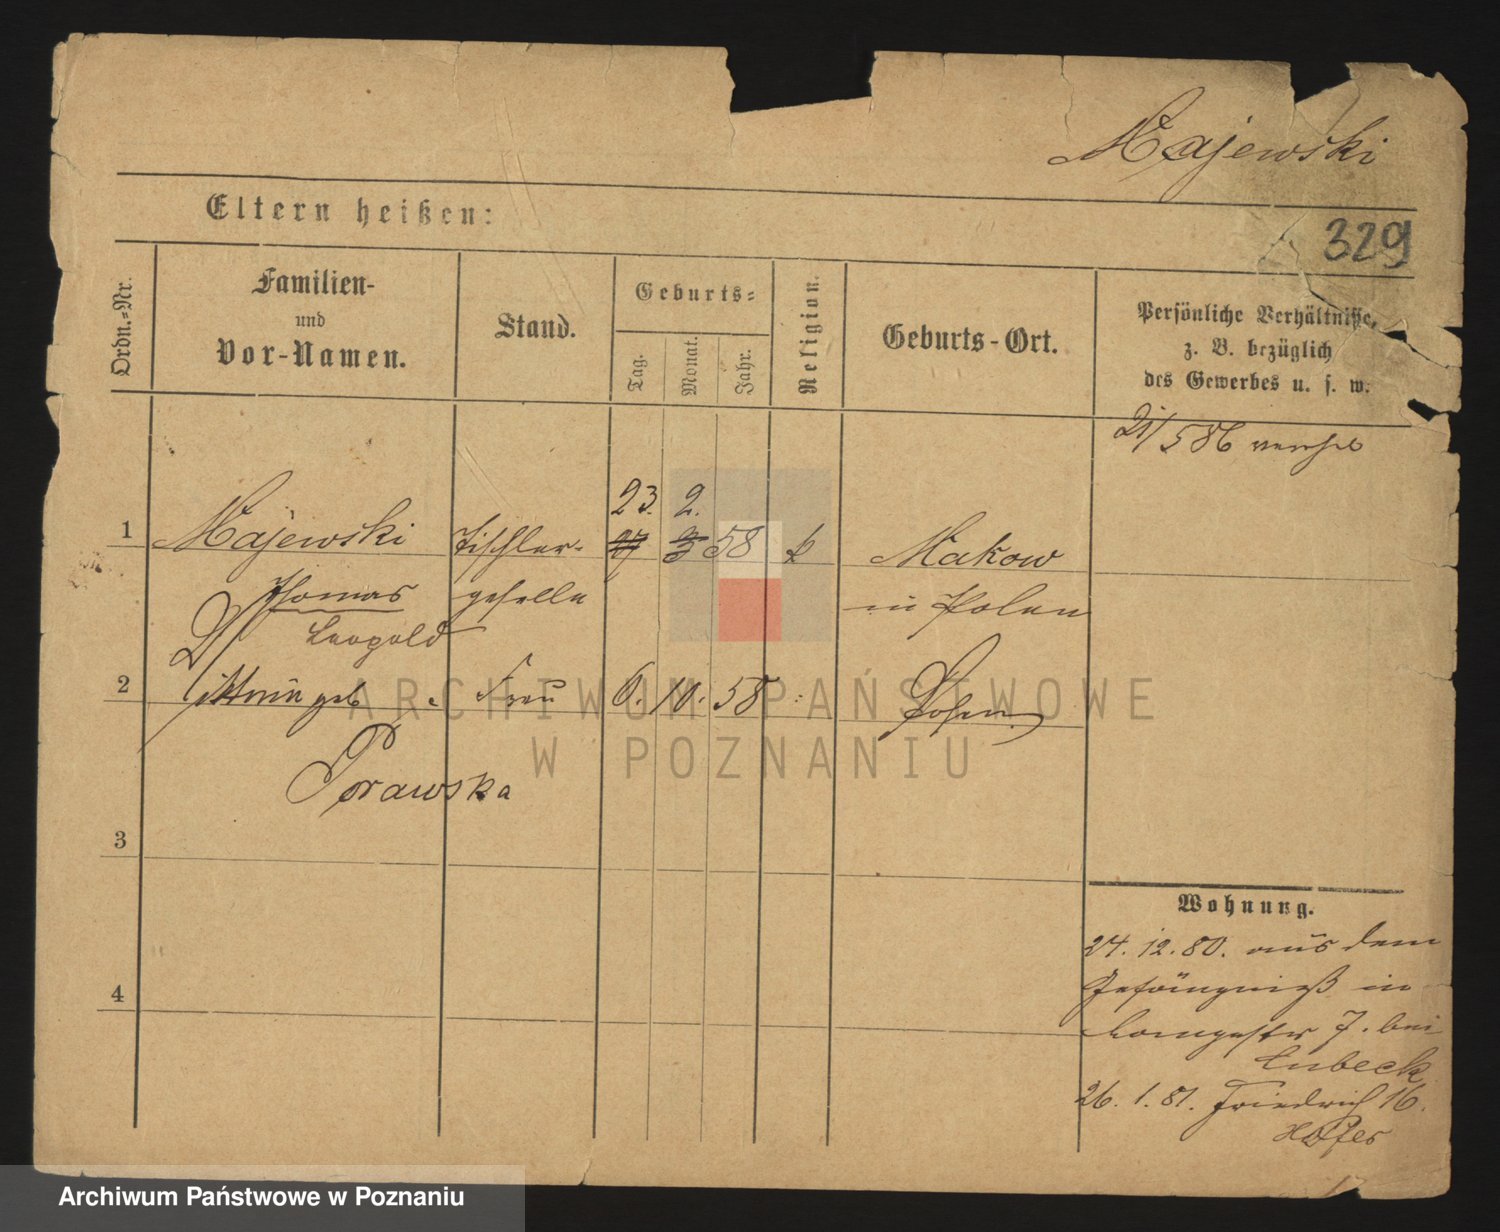 Majewski
Eltern heißen:
329
Ordn.-Nr.
Familien-
und
Vor-Namen.
Stand.
Geburts-
Tag.
Monat.
Jahr.
Religion.
Geburts-Ort.
Persönliche Verhältnisse,
z. B. bezüglich
des Gewerbes u. s. w.
21/5 86
23. 2.
1 Majewski Tischler- 27 3 58 k Makow
Thomas geselle in Polen
Leopold
2 geb. Frau 6. 10. 58 Posen
Porawska
3
4
Wohnung.
24. 12. 80. aus dem
Gefängniß in
7. bei
Lubeck
26. 1. 81. Friedrich 16.
ARCHIWUM PAŃSTWOWE
W POZNANIU
Archiwum Państwowe w Poznaniu